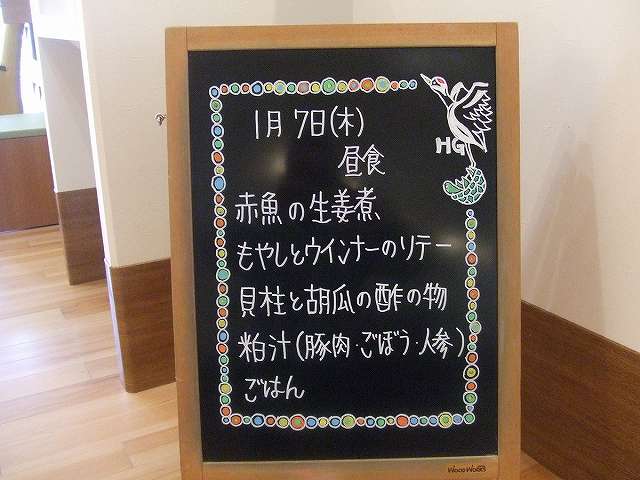 1月7日(木)
昼食
HG
赤魚の生姜煮、
もやしとウインナーのソテー
貝柱と胡瓜の酢の物
粕汁(豚肉・ごぼう・人参)
ごはん